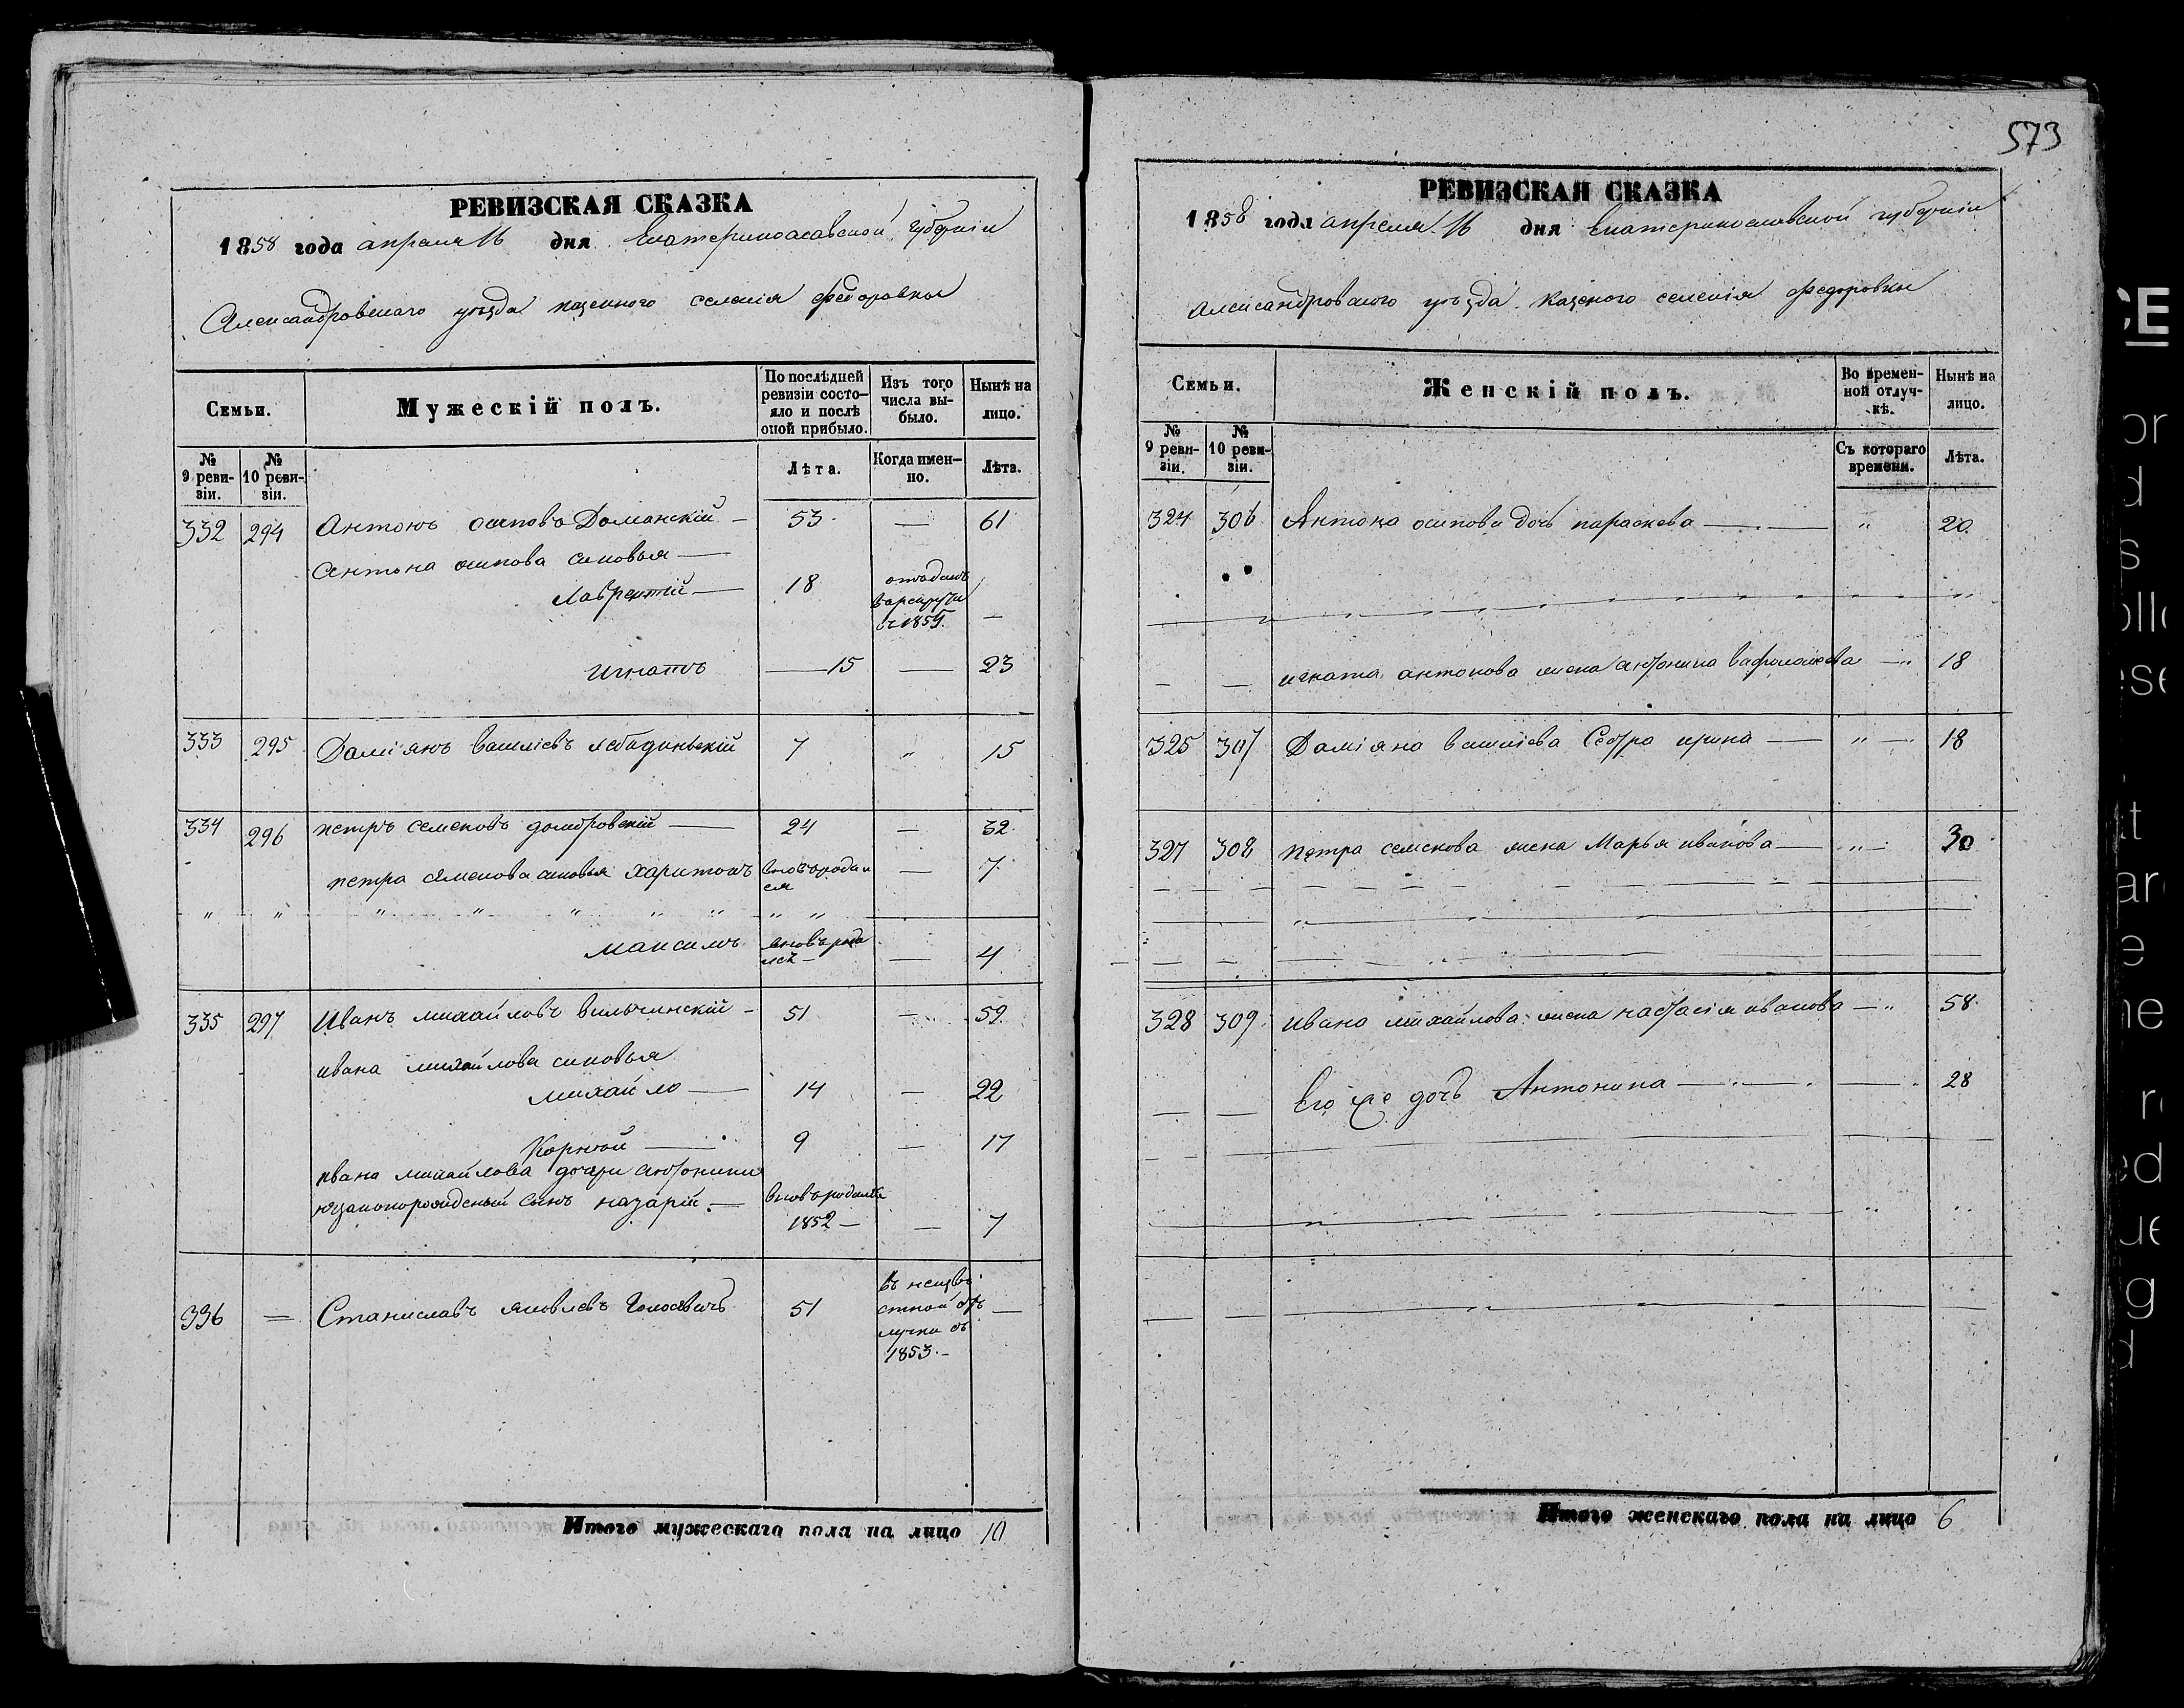 573
РЕВИЗСКАЯ СКАЗКА
1858 года апреля 16 дня Екатеринославской Губерніи
Александровскаго уѣзда казенного селенія Федоровки
Семьи.
Мужескій полъ.
По послѣдней ревизіи состояло и послѣ оной прибыло.
Изъ того числа выбыло.
Нынѣ на лицо.
№ 9 ревизіи.
№ 10 ревизіи.
Лѣта.
Когда именно.
Лѣта.
332 294 Антонъ осиповъ Доманскій — 53 — 61
Антона осипова сыновья —
Лаврентій — 18 отъданъ
врекруты
въ 1855. —
Игнатъ — 15 — 23
333 295 Даміянъ василіевъ Лебединьскій 7 „ 15
334 296 петръ семеновъ домбровскій — 24 — 32
петра семенова сыновья харитонъ вновърожденся — 7
максимъ вновърожился — 4
335 297 Иванъ михайловъ вильчинскій - 51 — 59
ивана михайлова сыновья
михайло — 14 — 22
Корней — 9 — 17
ивана михайлова дочери антонины
незаконорожденый сынъ назарій. — вновъродился
1852 — — 7
336 = Станиславъ яковлевъ 51 въ неизвѣстной отълучки съ 1853. — —
Итого мужескаго пола на лицо 10
РЕВИЗСКАЯ СКАЗКА
1858 года апреля 16 дня Екатеринославской губерніи
Александровского уѣзда казеного селенія Федоровки
Семьи.
Женскій полъ.
Во временной отлучкѣ.
Нынѣ на лицо.
№ 9 ревизіи.
№ 10 ревизіи.
Съ котораго времени.
Лѣта.
324 306 Антона осипова дочь параскева — „ 20
— — игната антонова жена антонина — „ 18
325 307 Даміяна василіева Сестра ирина — „ — 18
327 308 петра семенова жена Марья иванова — „ — 30
328 309 ивана михайлова жена настасія иванова — „ 58
— — Его же дочь Антонина — — 28
Итого женскаго пола на лицо 6